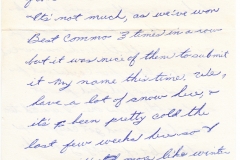 "Its not much, as we've won
Best Commo 3 times in a row
but it was nice of them to submit
it my name this time. We,
have a lot of snow here, &
it's been pretty cold the
last few weeks here so I
more like winter